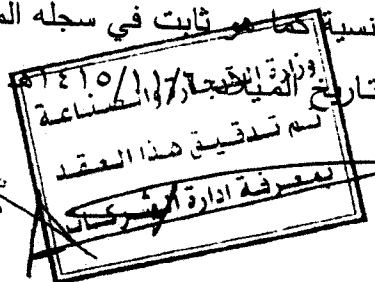 نسية كما هو ثابت في سجله الم
تاريخ الميلاد
وزارة التجارة والصناعة
تم تدقيق هذا العقد
بمعرفة ادارة الشركات